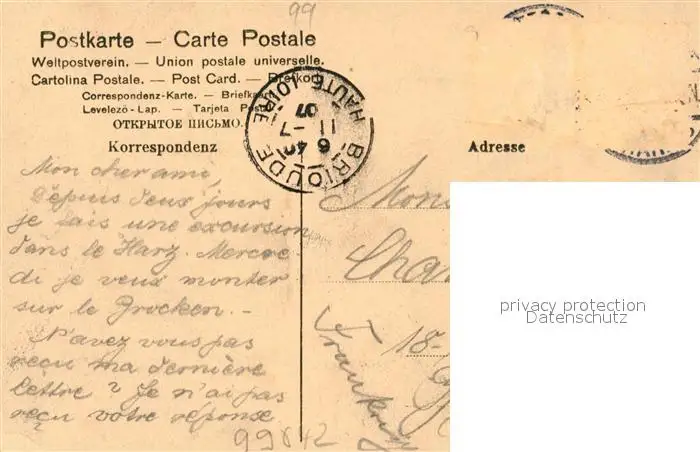 99
Postkarte — Carte Postale
Weltpostverein. — Union postale universelle.
Cartolina Postale. — Post Card. — Brefkort
Correspondenz-Karte. — Briefkaart
Levelező-Lap. — Tarjeta Postal
ОТКРЫТОЕ ПИСЬМО.
Korrespondenz
Adresse
BRIOUDE
HAUTE-LOIRE
6 40
11 -7
07
Mon cher ami,
Depuis deux jours
je fais une excursion
dans le Harz. Mercre
di je veux monter
sur le Brocken. -
N'avez vous pas
reçu ma dernière
lettre? Je n'ai pas
reçu votre réponse
99842
Mons
Cha
18-
privacy protection
Datenschutz